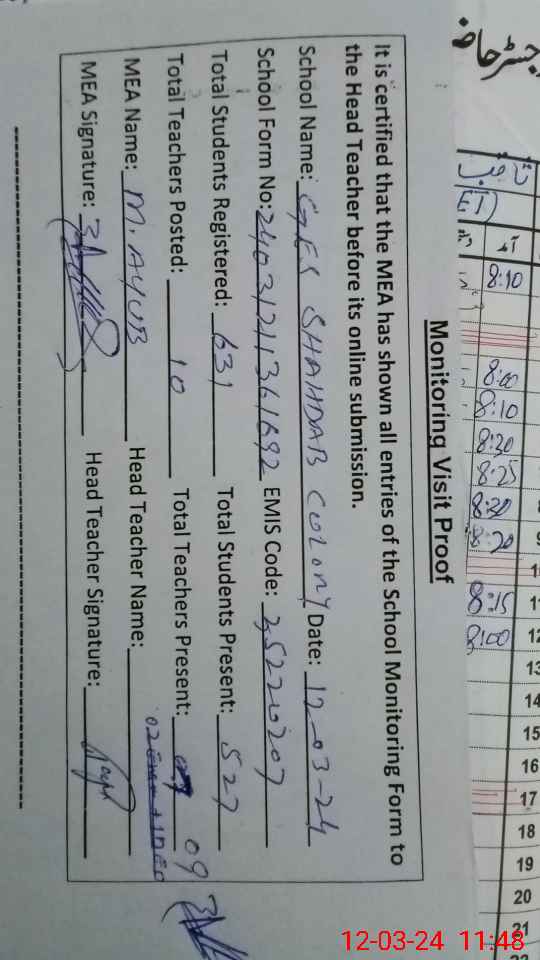 Monitoring Visit Proof
It is certified that the MEA has shown all entries of the School Monitoring Form to
the Head Teacher before its online submission.
School Name: GES SHAHDAB COLONY Date: 12-03-24
School Form No: 24031211361692 EMIS Code: 35220207
Total Students Registered: 631 Total Students Present: 527
Total Teachers Posted: 10 Total Teachers Present: 09
MEA Name: M. AYUB Head Teacher Name:
MEA Signature: Head Teacher Signature:
(ET)
8:10
8:00
8:10
8:20
8:25
8:20
8:20
8:15
8:00
11
12
13
14
15
16
17
18
19
20
21
22
12-03-24 11:48